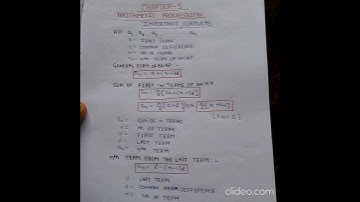 CHAPTER-5
ARITHMETIC PROGRESSION
IMPORTANT FORMULAS
AP a₁, a₂, a₃ ......... aₙ
a - FIRST TERM
d - COMMON DIFFERENCE
n - NO OF TERMS
aₙ - nTH TERM OF AN AP
GENERAL FORM OF AN AP :-
aₙ = a+(n-1)d
SUM OF FIRST 'n' TERMS OF AN AP
Sₙ = n/2[2a+(n-1)d]
Sₙ = n/2[a+l] n/2[a+aₙ]
[aₙ=l]
Sₙ = SUM OF n TERMS
n = NO OF TERM
a = FIRST TERM
l = LAST TERM
aₙ = nTH TERM
nTH TERM FROM THE LAST TERM :-
aₙ = l-(n-1)d
l - LAST TERM
d - COMMON DIFFERENCE
n - NO OF TERM
clideo.com